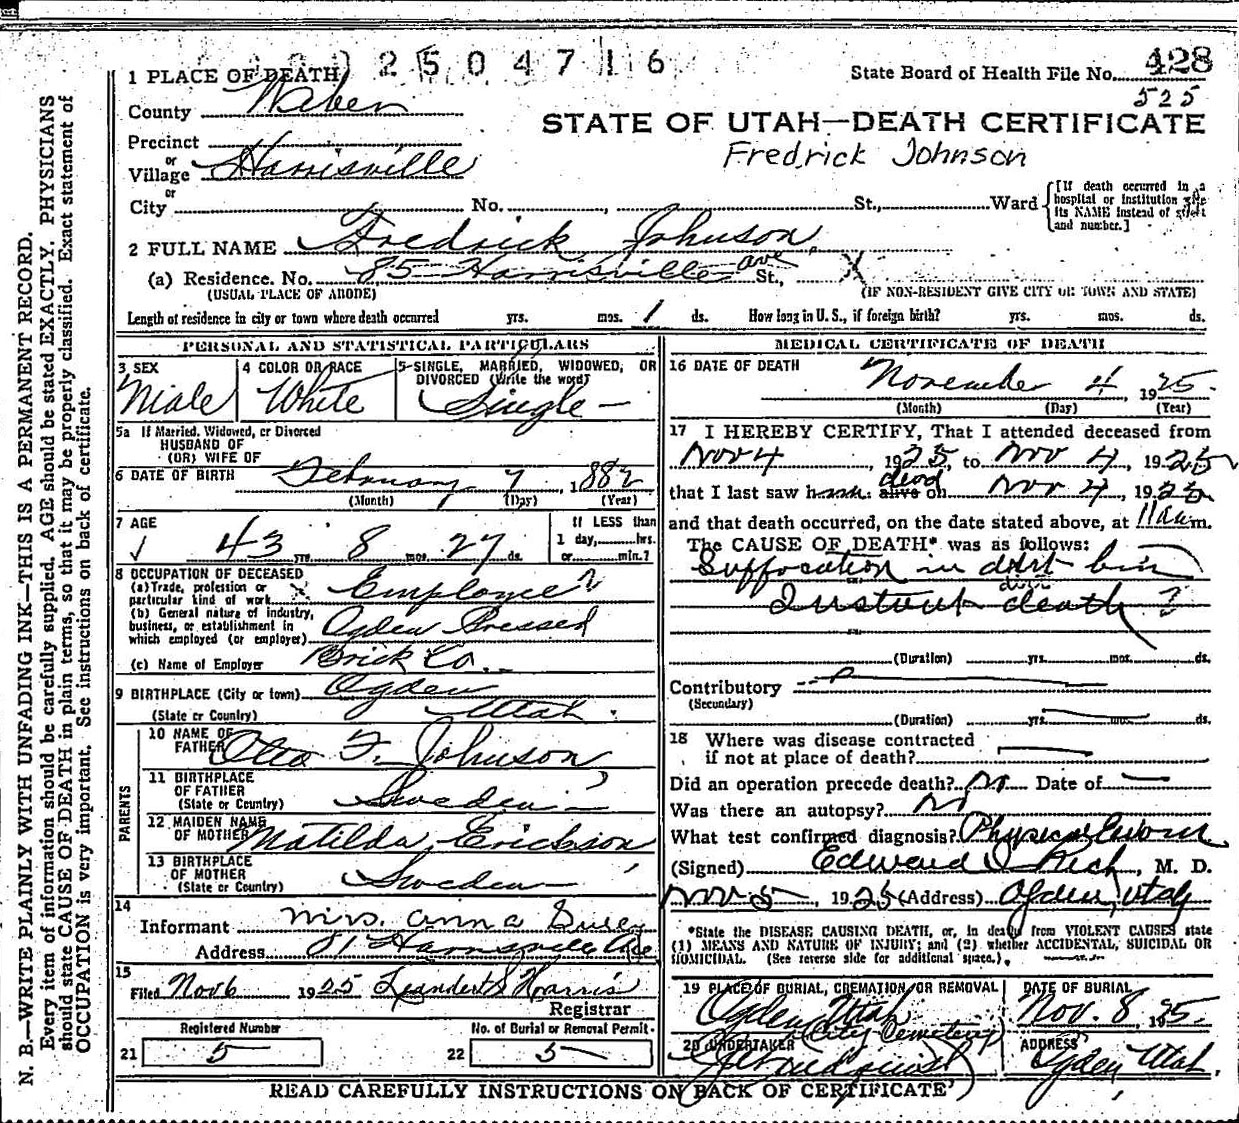 2504716
1 PLACE OF DEATH
State Board of Health File No. 428
525
County Weber
STATE OF UTAH—DEATH CERTIFICATE
Fredrick Johnson
Precinct
or
Village Harrisville
or
City No. , St., Ward
[If death occurred in a hospital or institution give its NAME instead of street and number.]
2 FULL NAME Fredrick Johnson
(a) Residence. No. 85 Harrisville Ave St., X
(USUAL PLACE OF ABODE) (IF NON-RESIDENT GIVE CITY OR TOWN AND STATE)
Length of residence in city or town where death occurred yrs. mos. 1 ds. How long in U. S., if foreign birth? yrs. mos. ds.
PERSONAL AND STATISTICAL PARTICULARS
3 SEX
Male
4 COLOR OR RACE
White
5 SINGLE, MARRIED, WIDOWED, OR
DIVORCED (Write the word)
Single —
5a If Married, Widowed, or Divorced
HUSBAND OF
(OR) WIFE OF
6 DATE OF BIRTH February 7, 1882
(Month) (Day) (Year)
7 AGE
43 yrs. 8 mos. 27 ds.
If LESS than
1 day, hrs.
or min.?
8 OCCUPATION OF DECEASED
(a) Trade, profession or
particular kind of work Employee
(b) General nature of industry,
business, or establishment in
which employed (or employer) Ogden Pressed
(c) Name of Employer Brick Co.
9 BIRTHPLACE (City or town) Ogden
(State or Country) Utah.
PARENTS
10 NAME OF
FATHER Otto F. Johnson
11 BIRTHPLACE
OF FATHER
(State or Country) Sweden
12 MAIDEN NAME
OF MOTHER Matilda Erickson
13 BIRTHPLACE
OF MOTHER
(State or Country) Sweden
14
Informant Mrs. Anna
Address 81 Harrisville Ave
15
Filed Nov 6 1925 Leander S Harris
Registrar
Registered Number No. of Burial or Removal Permit.
21 5 22 5
MEDICAL CERTIFICATE OF DEATH
16 DATE OF DEATH November 4, 1925.
(Month) (Day) (Year)
17 I HEREBY CERTIFY, That I attended deceased from
Nov 4, 1925, to Nov 4, 1925
that I last saw h alive dead on Nov 4, 1925
and that death occurred, on the date stated above, at 11 am.
The CAUSE OF DEATH* was as follows:
Suffocation in dirt bin
Instant death ?
(Duration) yrs. mos. ds.
Contributory
(Secondary)
(Duration) yrs. mos. ds.
18 Where was disease contracted
if not at place of death?
Did an operation precede death? No Date of
Was there an autopsy? No
What test confirmed diagnosis? Physical
(Signed) Edward I Rich, M. D.
Nov 5, 1925 (Address) Ogden, Utah
*State the DISEASE CAUSING DEATH, or, in death from VIOLENT CAUSES state
(1) MEANS AND NATURE OF INJURY; and (2) whether ACCIDENTAL, SUICIDAL OR
HOMICIDAL. (See reverse side for additional space.)
19 PLACE OF BURIAL, CREMATION OR REMOVAL
Ogden Utah
(City Cemetery)
DATE OF BURIAL
Nov. 8, 1925.
20 UNDERTAKER
ADDRESS
Ogden Utah.
READ CAREFULLY INSTRUCTIONS ON BACK OF CERTIFICATE
N. B.—WRITE PLAINLY WITH UNFADING INK—THIS IS A PERMANENT RECORD.
Every item of information should be carefully supplied. AGE should be stated EXACTLY. PHYSICIANS
should state CAUSE OF DEATH in plain terms, so that it may be properly classified. Exact statement of
OCCUPATION is very important. See instructions on back of certificate.